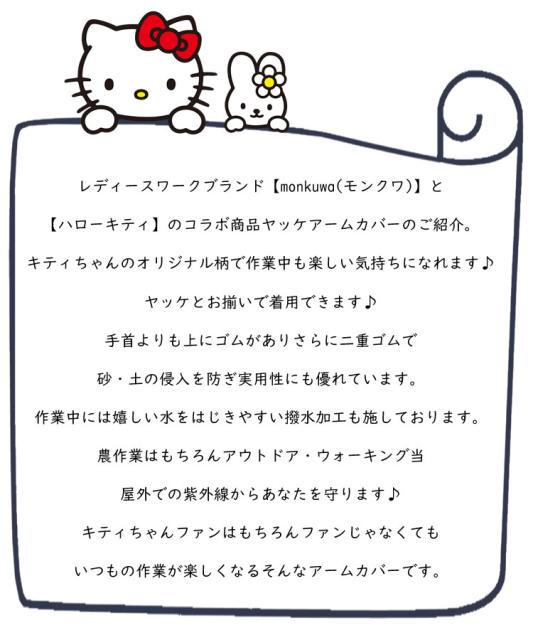 レディースワークブランド【monkuwa(モンクワ)】と
【ハローキティ】のコラボ商品ヤッケアームカバーのご紹介。
キティちゃんのオリジナル柄で作業中も楽しい気持ちになれます♪
ヤッケとお揃いで着用できます♪
手首よりも上にゴムがありさらに二重ゴムで
砂・土の侵入を防ぎ実用性にも優れています。
作業中には嬉しい水をはじきやすい撥水加工も施しております。
農作業はもちろんアウトドア・ウォーキング当
屋外での紫外線からあなたを守ります♪
キティちゃんファンはもちろんファンじゃなくても
いつもの作業が楽しくなるそんなアームカバーです。